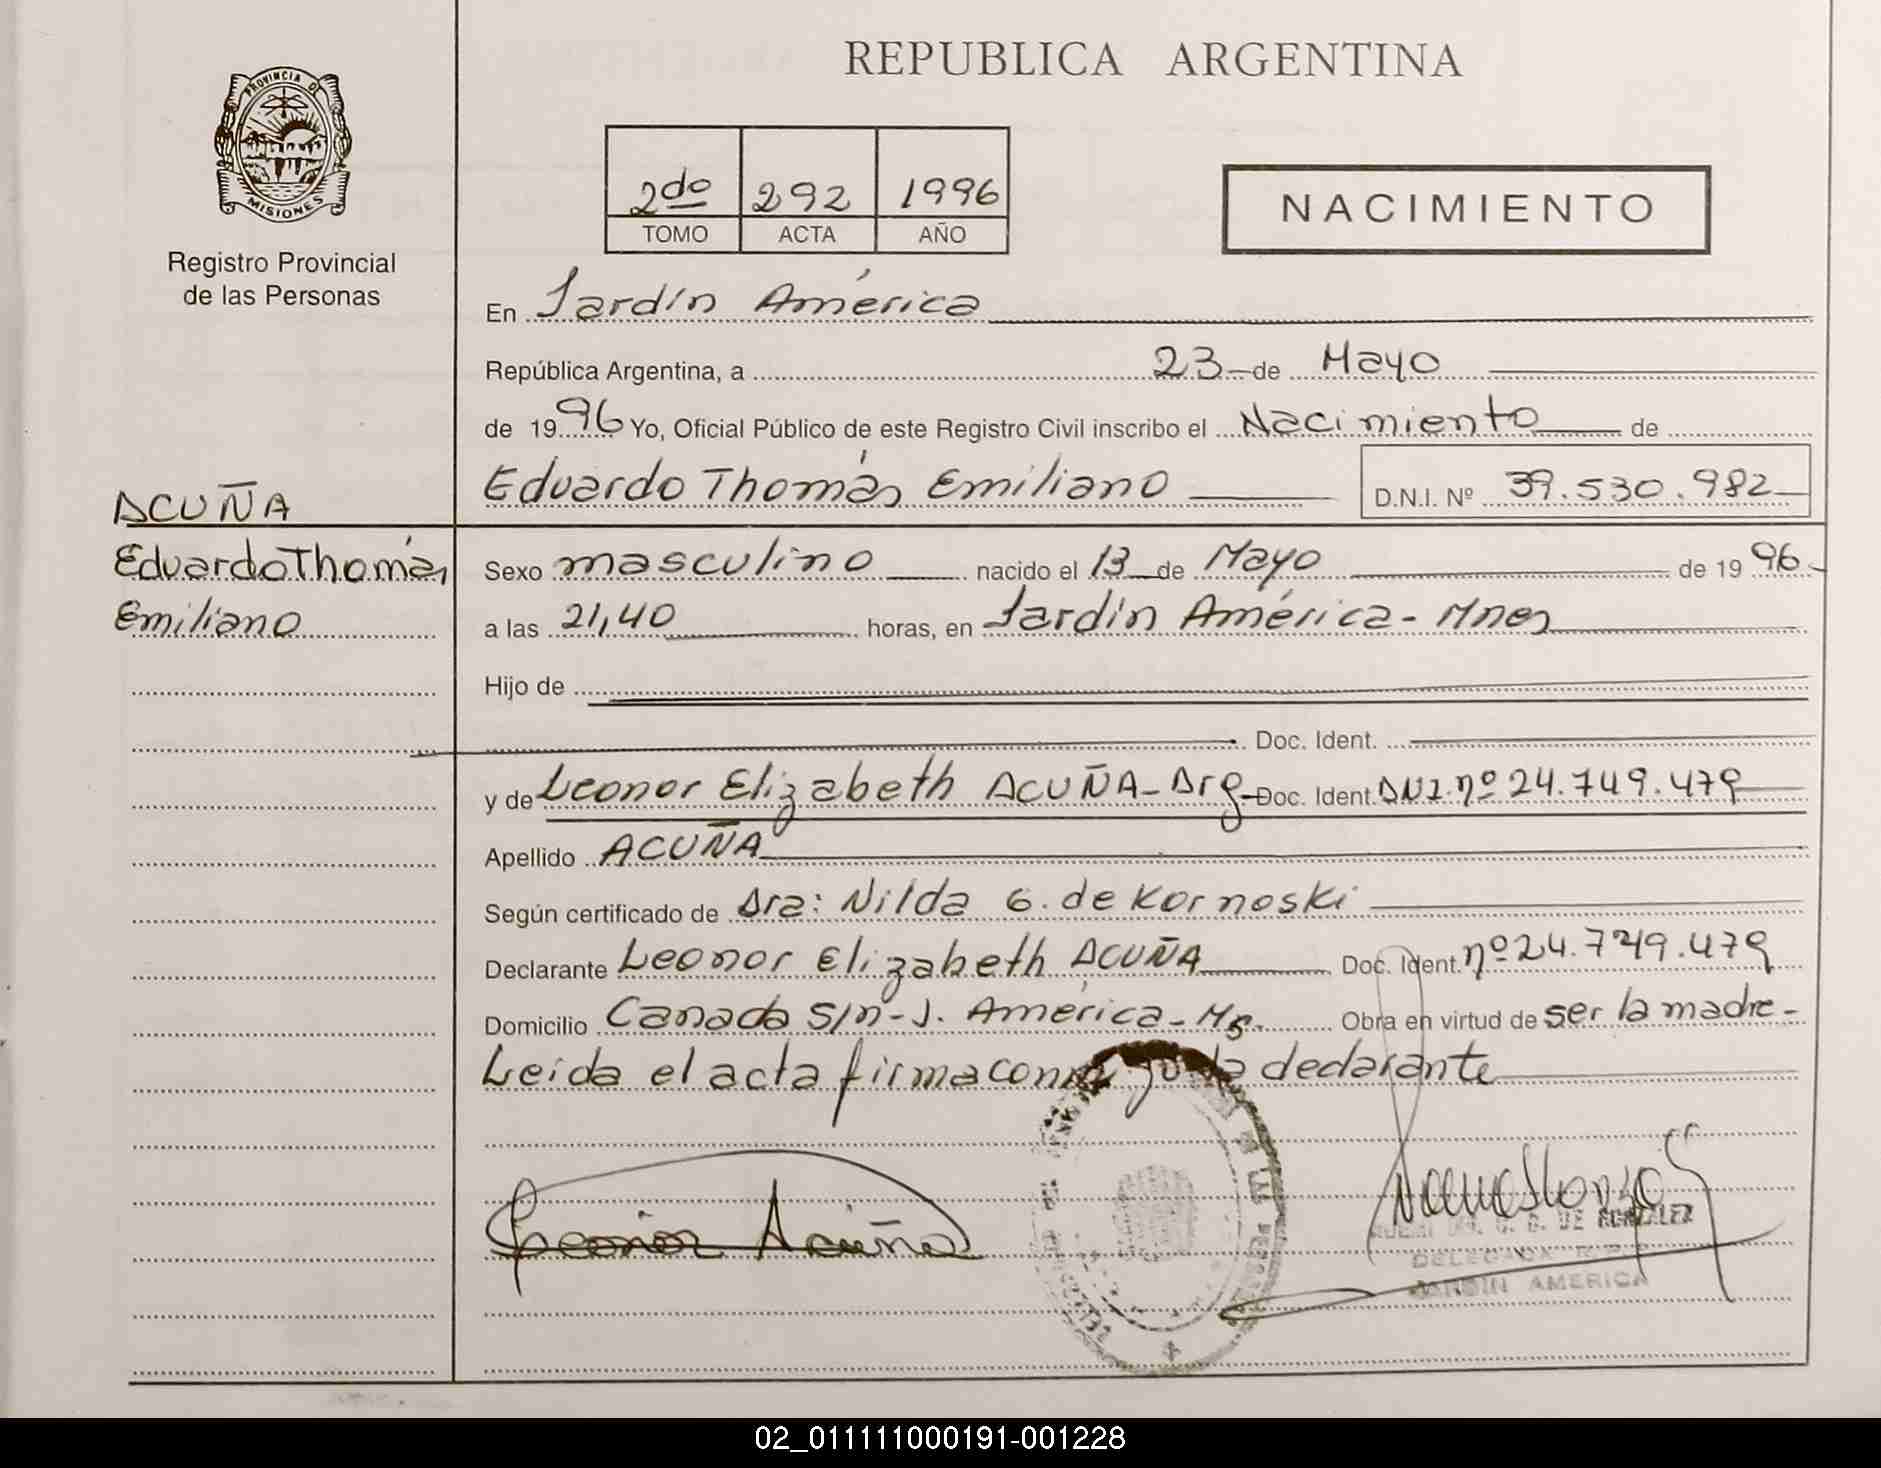 REPUBLICA ARGENTINA
PROVINCIA DE
MISIONES
Registro Provincial
de las Personas
2do 292 1996
TOMO ACTA AÑO
NACIMIENTO
En Jardín América
República Argentina, a 23 de Mayo
de 1996 Yo, Oficial Público de este Registro Civil inscribo el Nacimiento de
Eduardo Thomás Emiliano D.N.I. Nº 39.530.982
ACUÑA
Eduardo Thomás
Emiliano
Sexo masculino nacido el 13 de Mayo de 1996
a las 21,40 horas, en Jardín América - Mnes
Hijo de
Doc. Ident.
y de Leonor Elizabeth ACUÑA - Arg - Doc. Ident. DNI nº 24.749.479
Apellido ACUÑA
Según certificado de Dra: Nilda G. de Kornoski
Declarante Leonor Elizabeth ACUÑA Doc. Ident. nº 24.749.479
Domicilio Canada S/n - J. América - Ms. Obra en virtud de ser la madre -
Leída el acta firma conmigo la declarante
Leonor Acuña
DE GONZALEZ
DELEGADA R.P.
JARDIN AMERICA
02_011111000191-001228